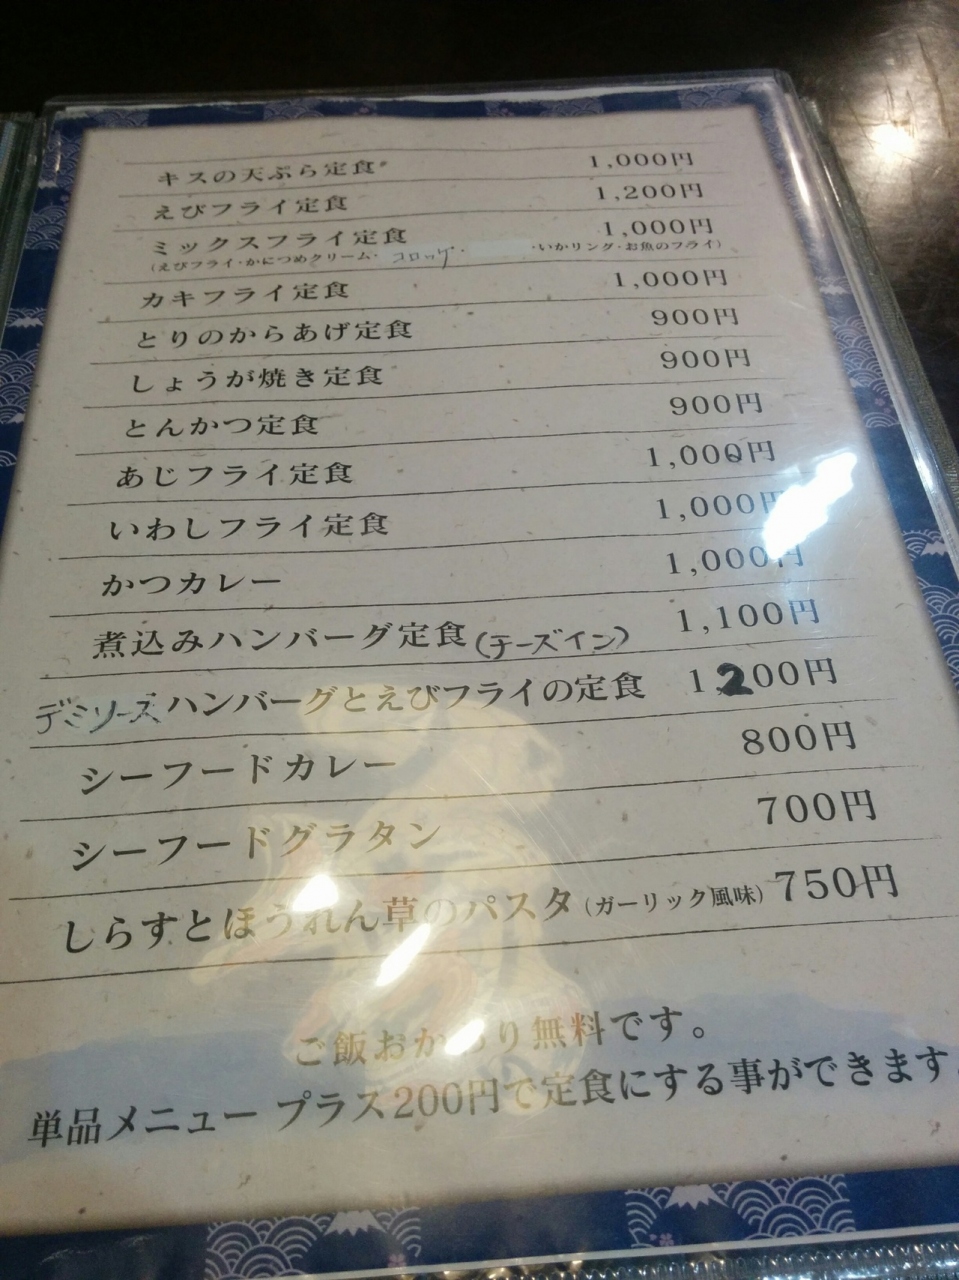 キスの天ぷら定食 1,000円
えびフライ定食 1,200円
ミックスフライ定食 1,000円
(えびフライ・かにつめクリーム・コロッケ・ ・いかリング・お魚のフライ)
カキフライ定食 1,000円
とりのからあげ定食 900円
しょうが焼き定食 900円
とんかつ定食 900円
あじフライ定食 1,000円
いわしフライ定食 1,000円
かつカレー 1,000円
煮込みハンバーグ定食(チーズイン) 1,100円
デミソースハンバーグとえびフライの定食 1,200円
シーフードカレー 800円
シーフードグラタン 700円
しらすとほうれん草のパスタ(ガーリック風味) 750円
ご飯おかわり無料です。
単品メニュー プラス200円で定食にする事ができます。